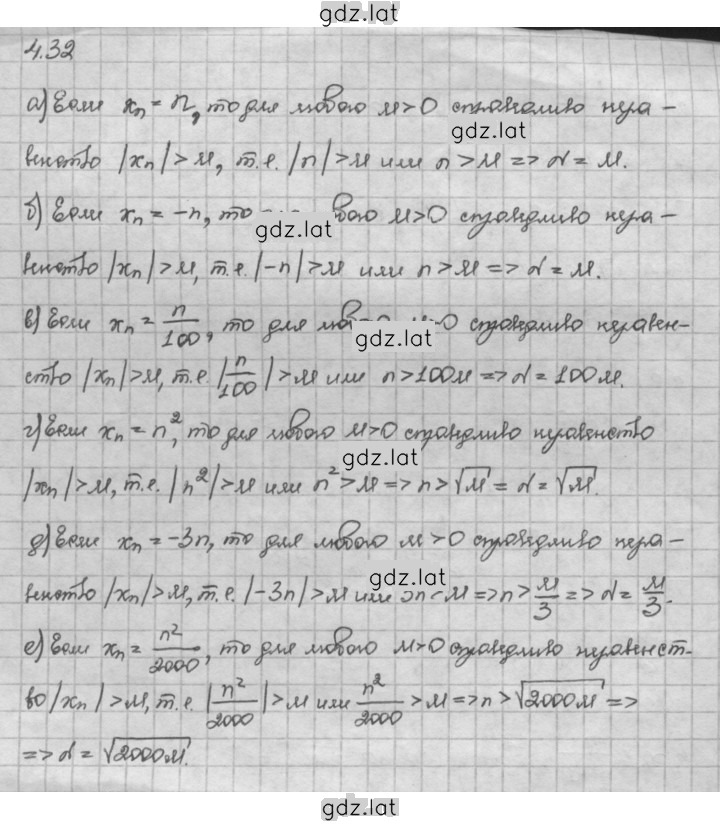 gdz.lat
4.32
а) Если xₙ = n, то для любого M>0 справедливо нера-
gdz.lat
венство |xₙ| > M, т.е. |n| > M или n > M => N = M.
б) Если xₙ = -n, то любого M>0 справедливо нера-
gdz.lat
венство |xₙ| > M, т.е. |-n| > M или n > M => N = M.
в) Если xₙ = n/100, то для >0 справедливо неравен-
gdz.lat
ство |xₙ| > M, т.е. |n/100| > M или n > 100M => N = 100M.
г) Если xₙ = n², то для любого M>0 справедливо неравенство
gdz.lat
|xₙ| > M, т.е. |n²| > M или n² > M => n > √M = N = √M.
д) Если xₙ = -3n, то для любого M > 0 справедливо нера-
gdz.lat
венство |xₙ| > M, т.е. |-3n| > M или M => n > M/3 => N = M/3.
е) Если xₙ = n²/2000, то для любого M>0 справедливо неравенст-
во |xₙ| > M, т.е. |n²/2000| > M или n²/2000 > M => n > √2000M =>
=> N = √2000M.
gdz.lat